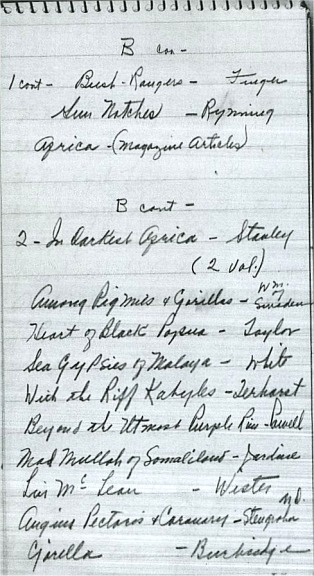 B con-
1 cont - Bush-Rangers - Finger
Gun Notches - Rynning
Africa - (Magazine Articles)
B cont -
2 - In Darkest Africa - Stanley
(2 Vol.)
Among Pigmies & Gorillas - Wm. of Sweden
Heart of Black Papua - Taylor
Sea Gypsies of Malaya - White
With the Riff Kabyles - Terhorst
Beyond the Utmost Purple Rim - Powell
Mad Mullah of Somaliland - Jardine
Mc Lean - Wister
Angina Pectoris & Coronary -
Gorilla - Burbridge